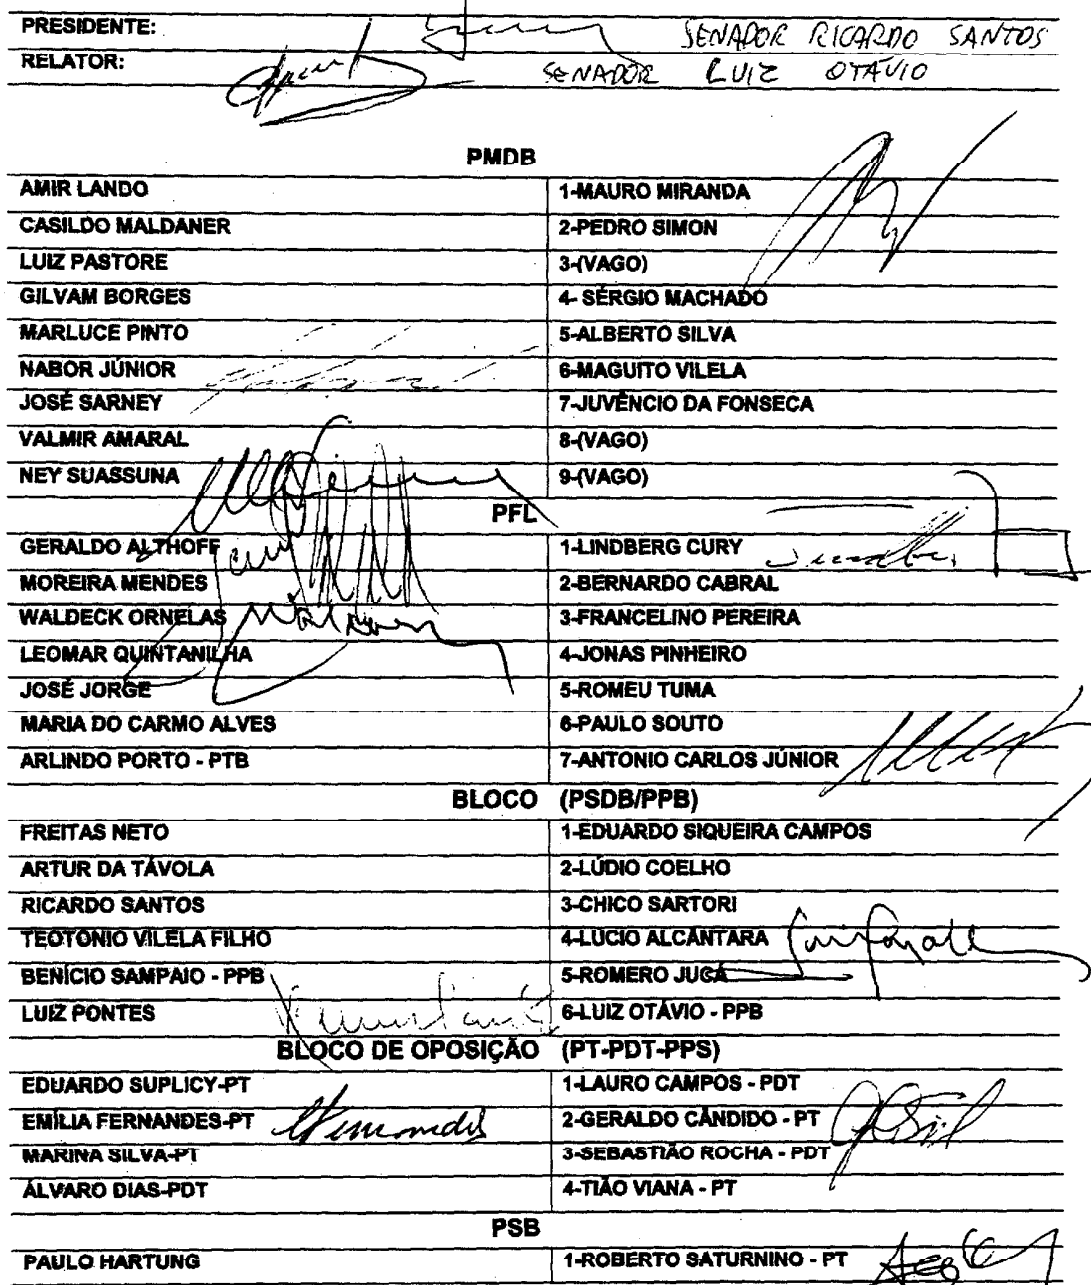 PRESIDENTE: SENADOR RICARDO SANTOS
RELATOR: SENADOR LUIZ OTÁVIO
PMDB
AMIR LANDO 1-MAURO MIRANDA
CASILDO MALDANER 2-PEDRO SIMON
LUIZ PASTORE 3-(VAGO)
GILVAM BORGES 4- SÉRGIO MACHADO
MARLUCE PINTO 5-ALBERTO SILVA
NABOR JÚNIOR 6-MAGUITO VILELA
JOSÉ SARNEY 7-JUVÊNCIO DA FONSECA
VALMIR AMARAL 8-(VAGO)
NEY SUASSUNA 9-(VAGO)
PFL
GERALDO ALTHOFF 1-LINDBERG CURY
MOREIRA MENDES 2-BERNARDO CABRAL
WALDECK ORNELAS 3-FRANCELINO PEREIRA
LEOMAR QUINTANILHA 4-JONAS PINHEIRO
JOSÉ JORGE 5-ROMEU TUMA
MARIA DO CARMO ALVES 6-PAULO SOUTO
ARLINDO PORTO - PTB 7-ANTONIO CARLOS JÚNIOR
BLOCO (PSDB/PPB)
FREITAS NETO 1-EDUARDO SIQUEIRA CAMPOS
ARTUR DA TÁVOLA 2-LÚDIO COELHO
RICARDO SANTOS 3-CHICO SARTORI
TEOTÔNIO VILELA FILHO 4-LÚCIO ALCÂNTARA
BENÍCIO SAMPAIO - PPB 5-ROMERO JUCÁ
LUIZ PONTES 6-LUIZ OTÁVIO - PPB
BLOCO DE OPOSIÇÃO (PT-PDT-PPS)
EDUARDO SUPLICY-PT 1-LAURO CAMPOS - PDT
EMÍLIA FERNANDES-PT 2-GERALDO CÂNDIDO - PT
MARINA SILVA-PT 3-SEBASTIÃO ROCHA - PDT
ÁLVARO DIAS-PDT 4-TIÃO VIANA - PT
PSB
PAULO HARTUNG 1-ROBERTO SATURNINO - PT